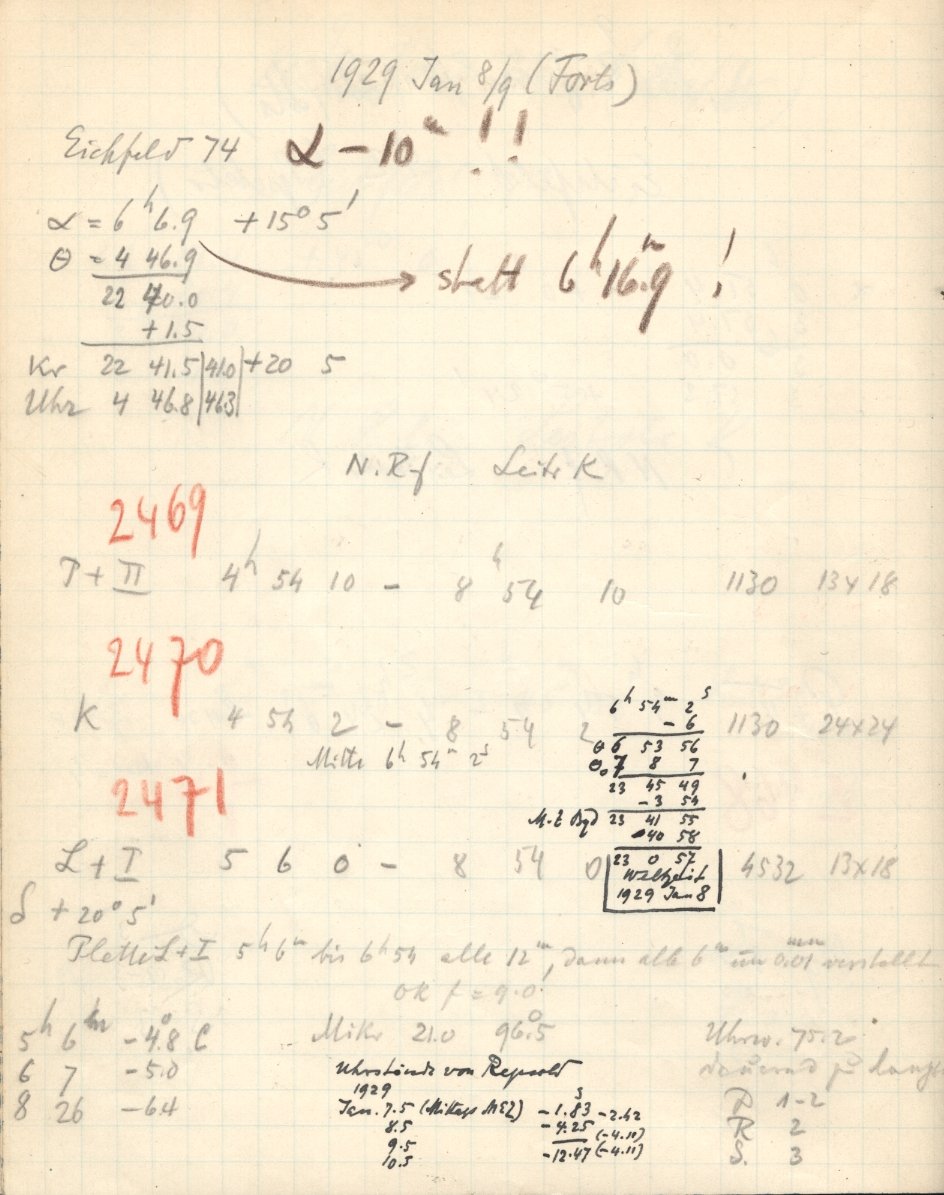 1929 Jan 8/9 (Forts)
Eichfeld 74 α – 10ᵐ !!
α = 6ʰ 6.9 +15° 5'
θ = 4 46.9
statt 6ʰ 16ᵐ.9 !
22 40.0
+1.5
Kr 22 41.5 | 41.0 | +20 5
Uhr 4 46.8 | 46.3 |
N. Rf Leitr K
2469
P + II 4ʰ 54 10 – 8ʰ 54 10 1130 13x18
2470
K 4 54 2 – 8 54 2 1130 24x24
Mitte 6ʰ 54ᵐ 2ˢ
6ʰ 54ᵐ 2ˢ
– 6
θ 6 53 56
θ₀ 7 8 7
23 45 49
– 3 54
M.Z Bgd 23 41 55
– 40 58
23 0 57
Weltzeit
1929 Jan 8
2471
L + I 5 6 0 – 8 54 0 4532 13x18
δ + 20° 5'
Platte L + I 5ʰ 6ᵐ bis 6ʰ 54 alle 12ᵐ, dann alle 6ᵐ um 0.01 verstellt
OR f = 9.0
5ʰ 6ᵐ –4.8° C Mikr 21.0 96.5 Uhrw. 75.2
6 7 –5.0 dauernd zu
8 26 –6.4
Uhrstände von Repsold
1929
Jan. 7.5 (Mittags MEZ) –1.83ˢ –2.42
8.5 –4.25 (–4.11)
9.5 –12.47 (–4.11)
10.5
D 1–2
R 2
S. 3